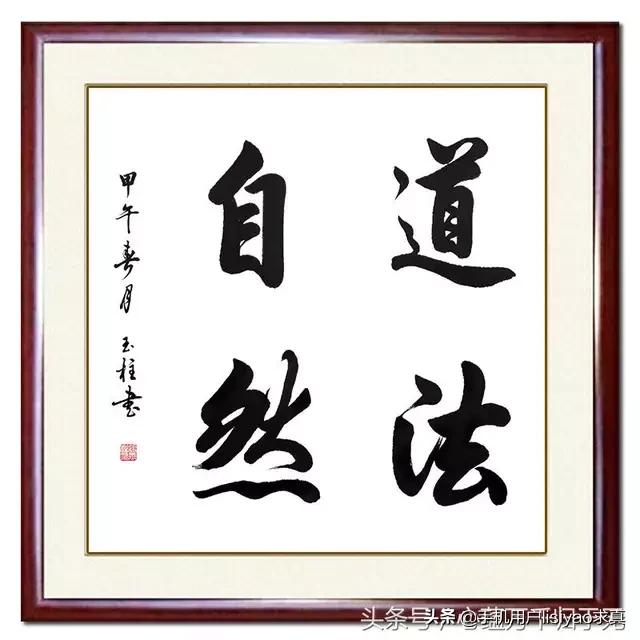 道法
自然
甲午春月 玉柱书
头条 @手机用户lisiyao求真